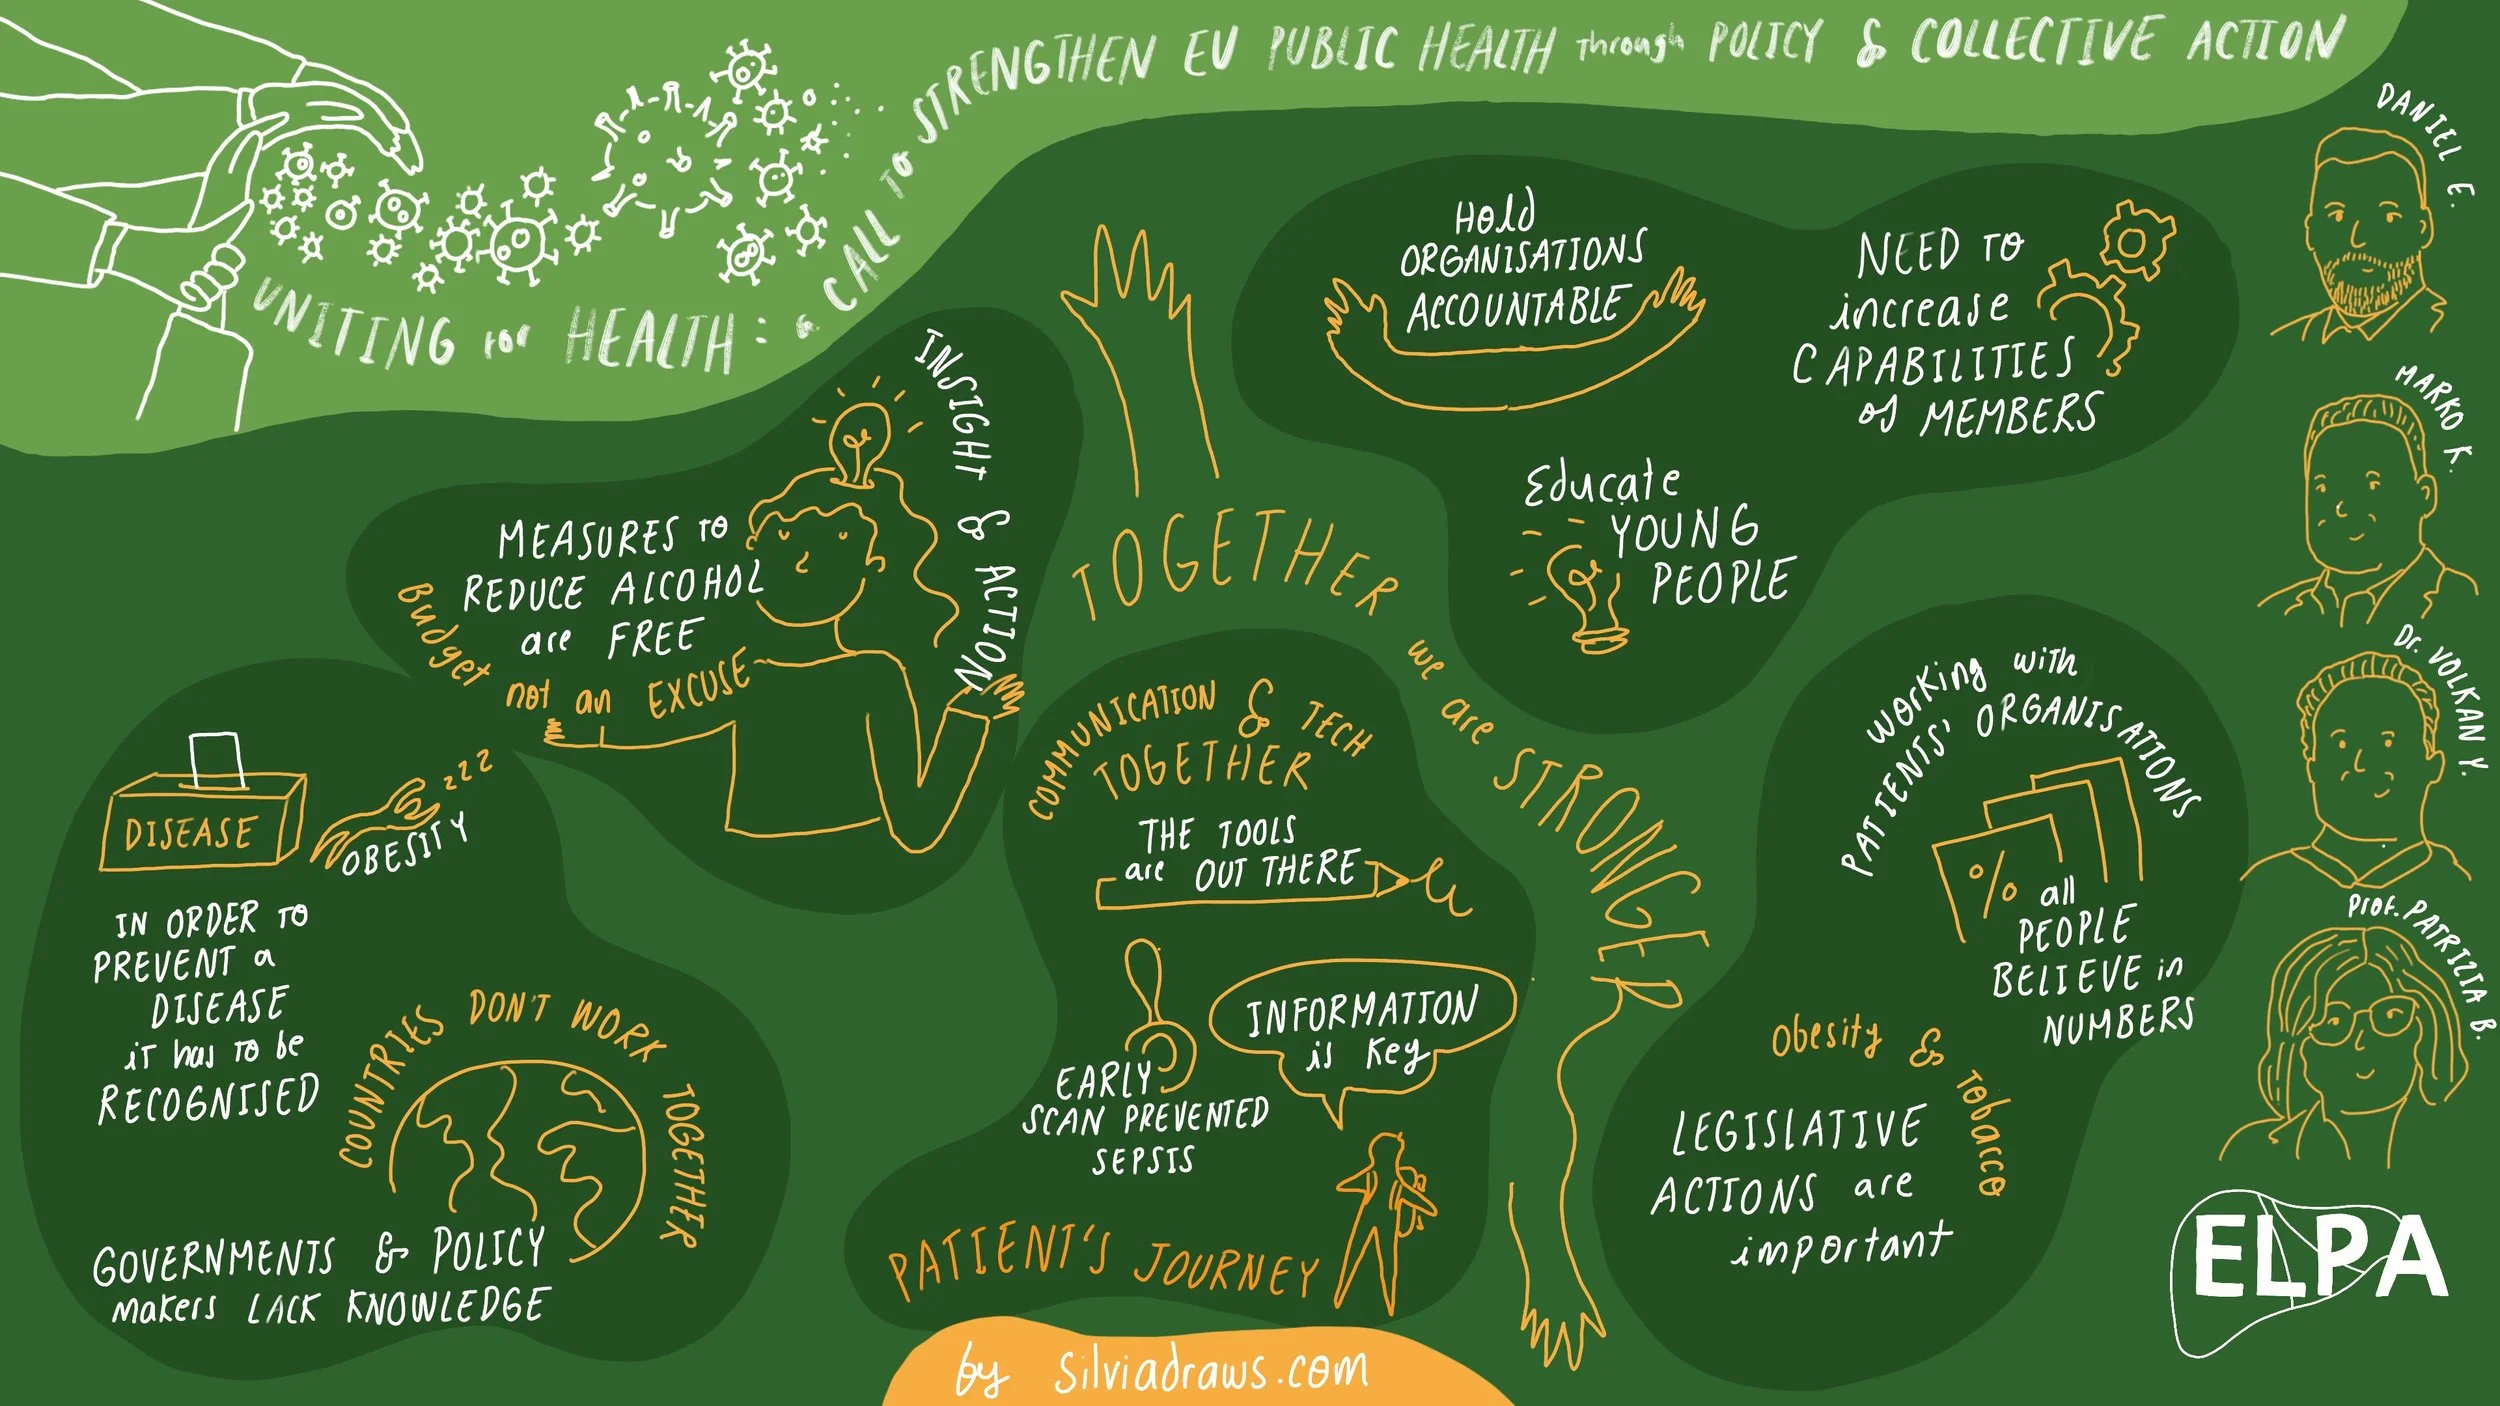 UNITING for HEALTH: a CALL TO STRENGTHEN EU PUBLIC HEALTH through POLICY & COLLECTIVE ACTION
INSIGHT & ACTION
MEASURES TO
REDUCE ALCOHOL
are FREE
Budget not an EXCUSE
DISEASE
zzz
OBESITY
IN ORDER TO
PREVENT a
DISEASE
it has to be
RECOGNISED
COUNTRIES DON'T WORK TOGETHER
GOVERNMENTS & POLICY
makers LACK KNOWLEDGE
TOGETHER we are STRONGER
COMMUNICATION & TECH
TOGETHER
THE TOOLS
are OUT THERE
INFORMATION
is key
EARLY
SCAN PREVENTED
SEPSIS
PATIENT'S JOURNEY
Hold
ORGANISATIONS
ACCOUNTABLE
NEED TO
increase
CAPABILITIES
of MEMBERS
Educate
YOUNG
PEOPLE
Working with
PATIENTS' ORGANISATIONS
%
all
PEOPLE
BELIEVE in
NUMBERS
Obesity & Tobacco
LEGISLATIVE
ACTIONS are
important
DANIEL E.
MARKO K.
Dr. VOLKAN Y.
Prof. PATRIZIA B.
ELPA
by silviadraws.com